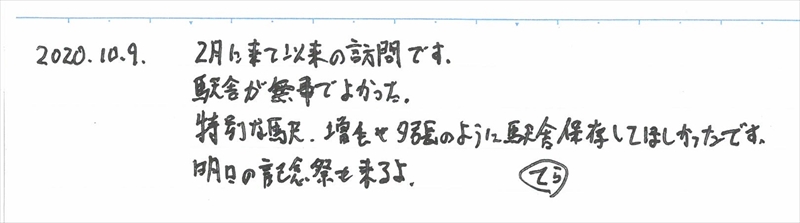 2020.10.9. 2月に来て以来の訪問です。
駅舎が無事でよかった。
特別な駅、増毛や夕張のように駅舎保存してほしかったです。
明日の記念祭も来るよ。 てら